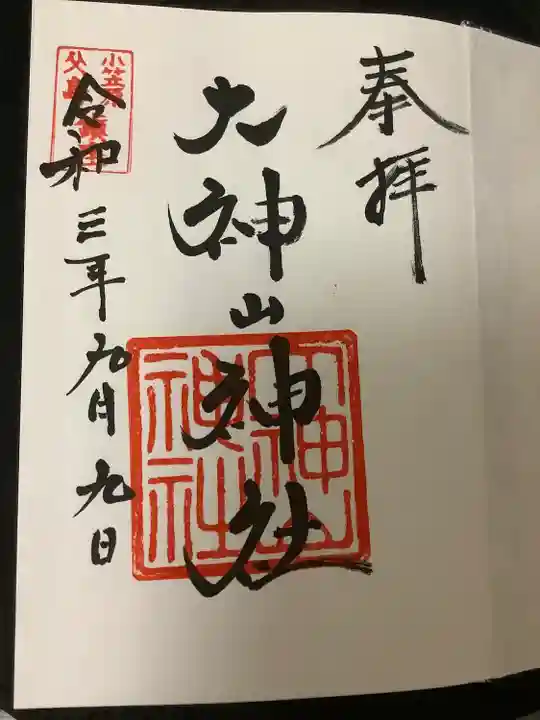 奉拝
大神山神社
大神山
神社
令和三年九月九日
小笠原
父島 鎮座